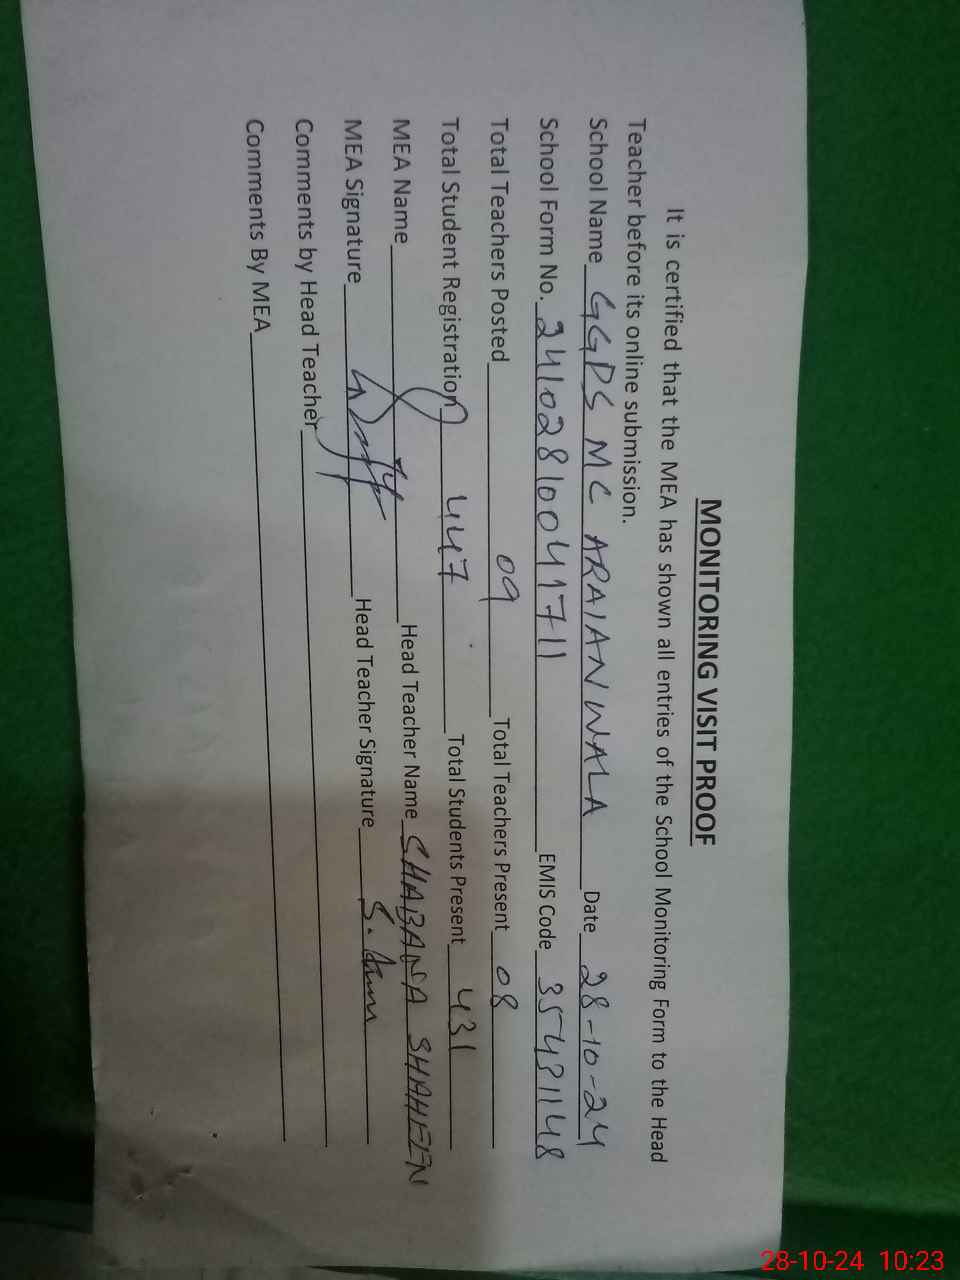 MONITORING VISIT PROOF
It is certified that the MEA has shown all entries of the School Monitoring Form to the Head
Teacher before its online submission.
School Name GGPS MC ARAIANWALA Date 28-10-24
School Form No. 24102810041711 EMIS Code 35431148
Total Teachers Posted 09 Total Teachers Present 08
Total Student Registration 447 Total Students Present 431
MEA Name Head Teacher Name SHABANA SHAHEEN
MEA Signature Head Teacher Signature
Comments by Head Teacher
Comments By MEA
28-10-24 10:23